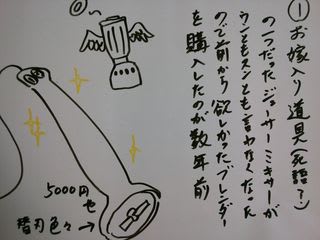 ① お嫁入り道具(死語?)
の一つだったジューサーミキサーが
ウンともスンとも言わなくなった
ので前から欲しかったブレンダー
を購入したのが数年前
5000円
也
替刃色々→